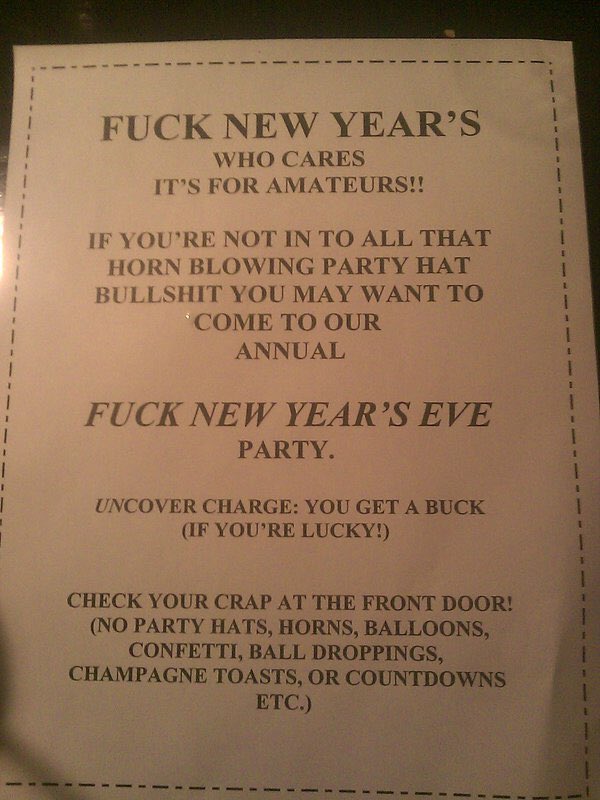 FUCK NEW YEAR'S
WHO CARES
IT'S FOR AMATEURS!!
IF YOU'RE NOT IN TO ALL THAT
HORN BLOWING PARTY HAT
BULLSHIT YOU MAY WANT TO
COME TO OUR
ANNUAL
FUCK NEW YEAR'S EVE
PARTY.
UNCOVER CHARGE: YOU GET A BUCK
(IF YOU'RE LUCKY!)
CHECK YOUR CRAP AT THE FRONT DOOR!
(NO PARTY HATS, HORNS, BALLOONS,
CONFETTI, BALL DROPPINGS,
CHAMPAGNE TOASTS, OR COUNTDOWNS
ETC.)